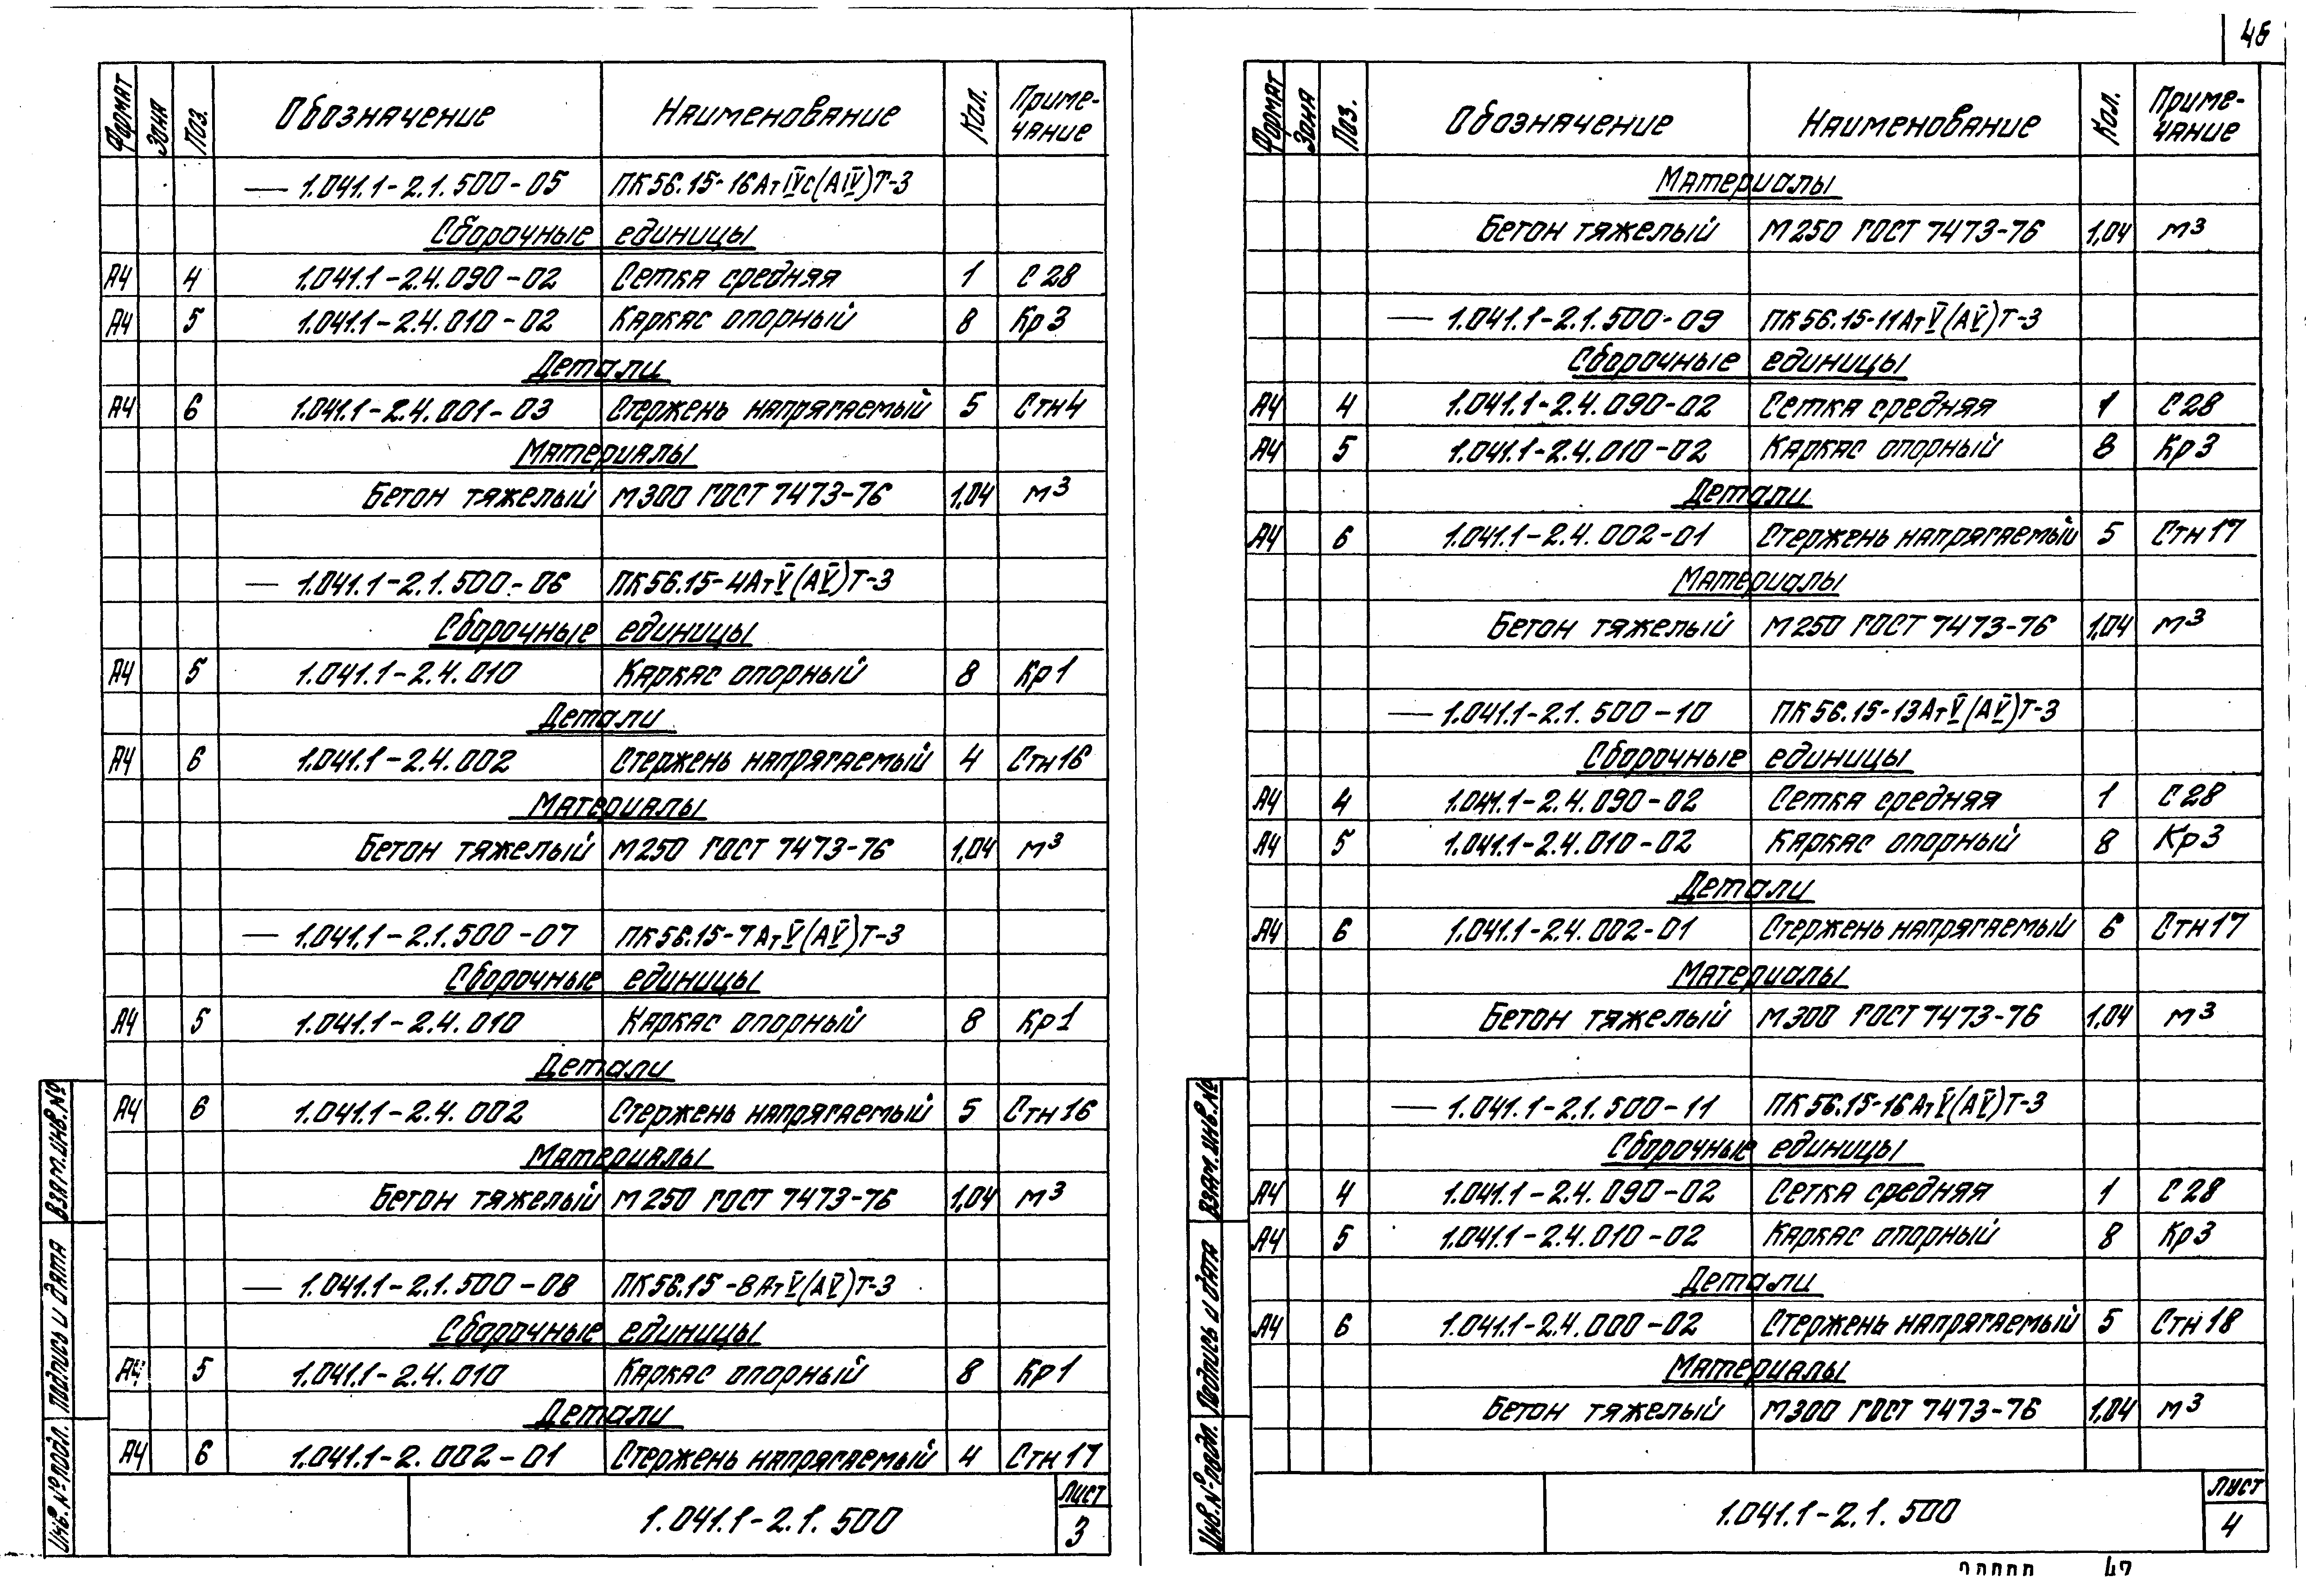 46
Формат Зона Поз. Обозначение Наименование Кол. Примечание
— 1.041.1-2.1.500-05 ПК56.15-16АтIVС(АIV)Т-3
Сборочные единицы
А4 4 1.041.1-2.4.090-02 Сетка средняя 1 С28
А4 5 1.041.1-2.4.010-02 Каркас опорный 8 Кр3
Детали
А4 6 1.041.1-2.4.001-03 Стержень напрягаемый 5 Стн4
Материалы
Бетон тяжелый М300 ГОСТ 7473-76 1,04 м³
— 1.041.1-2.1.500-06 ПК56.15-4АтV(АV)Т-3
Сборочные единицы
А4 5 1.041.1-2.4.010 Каркас опорный 8 Кр1
Детали
А4 6 1.041.1-2.4.002 Стержень напрягаемый 4 Стн16
Материалы
Бетон тяжелый М250 ГОСТ 7473-76 1,04 м³
— 1.041.1-2.1.500-07 ПК56.15-7АтV(АV)Т-3
Сборочные единицы
А4 5 1.041.1-2.4.010 Каркас опорный 8 Кр1
Детали
А4 6 1.041.1-2.4.002 Стержень напрягаемый 5 Стн16
Материалы
Бетон тяжелый М250 ГОСТ 7473-76 1,04 м³
— 1.041.1-2.1.500-08 ПК56.15-8АтV(АV)Т-3
Сборочные единицы
А4 5 1.041.1-2.4.010 Каркас опорный 8 Кр1
Детали
А4 6 1.041.1-2.002-01 Стержень напрягаемый 4 Стн17
Инв.№подл. Подпись и дата Взам.инв.№
1.041.1-2.1.500
Лист
3
Формат Зона Поз. Обозначение Наименование Кол. Примечание
Материалы
Бетон тяжелый М250 ГОСТ 7473-76 1,04 м³
— 1.041.1-2.1.500-09 ПК56.15-11АтV(АV)Т-3
Сборочные единицы
А4 4 1.041.1-2.4.090-02 Сетка средняя 1 С28
А4 5 1.041.1-2.4.010-02 Каркас опорный 8 Кр3
Детали
А4 6 1.041.1-2.4.002-01 Стержень напрягаемый 5 Стн17
Материалы
Бетон тяжелый М250 ГОСТ 7473-76 1,04 м³
— 1.041.1-2.1.500-10 ПК56.15-13АтV(АV)Т-3
Сборочные единицы
А4 4 1.041.1-2.4.090-02 Сетка средняя 1 С28
А4 5 1.041.1-2.4.010-02 Каркас опорный 8 Кр3
Детали
А4 6 1.041.1-2.4.002-01 Стержень напрягаемый 6 Стн17
Материалы
Бетон тяжелый М300 ГОСТ 7473-76 1,04 м³
— 1.041.1-2.1.500-11 ПК56.15-16АтV(АV)Т-3
Сборочные единицы
А4 4 1.041.1-2.4.090-02 Сетка средняя 1 С28
А4 5 1.041.1-2.4.010-02 Каркас опорный 8 Кр3
Детали
А4 6 1.041.1-2.4.000-02 Стержень напрягаемый 5 Стн18
Материалы
Бетон тяжелый М300 ГОСТ 7473-76 1,04 м³
Инв.№подл. Подпись и дата Взам.инв.№
1.041.1-2.1.500
Лист
4